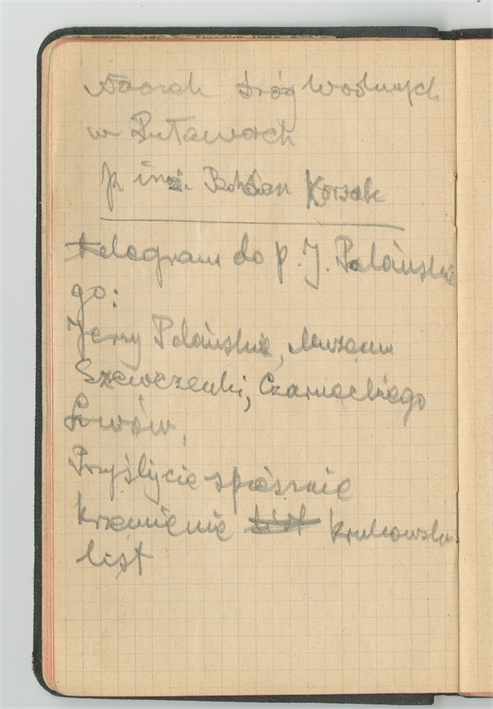 Zarząd dróg wodnych
w Puławach
p. inż. Bohdan
telegram do p. J. Polańskie
go:
Jerzy Polański, Muzeum
Szewczenki, Czarnieckiego
Lwów,
Przyślijcie spiesznie
krzemienie list krakowska
list